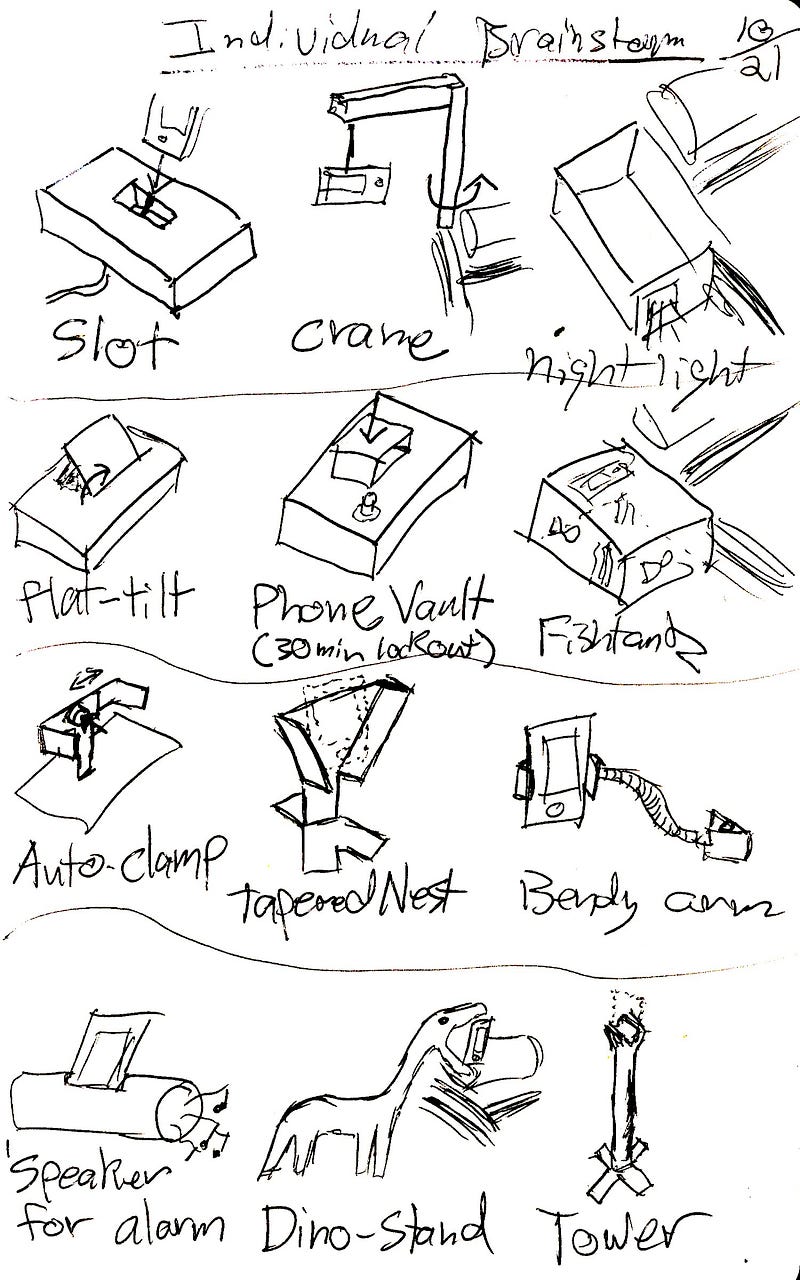 Individual Brainstorm 10/21
Slot
crane
night light
flat-tilt
Phone Vault
(30 min lockout)
Fishtank
Auto-clamp
tapered Nest
Bendy arm
Speaker
for alarm
Dino-Stand
Tower